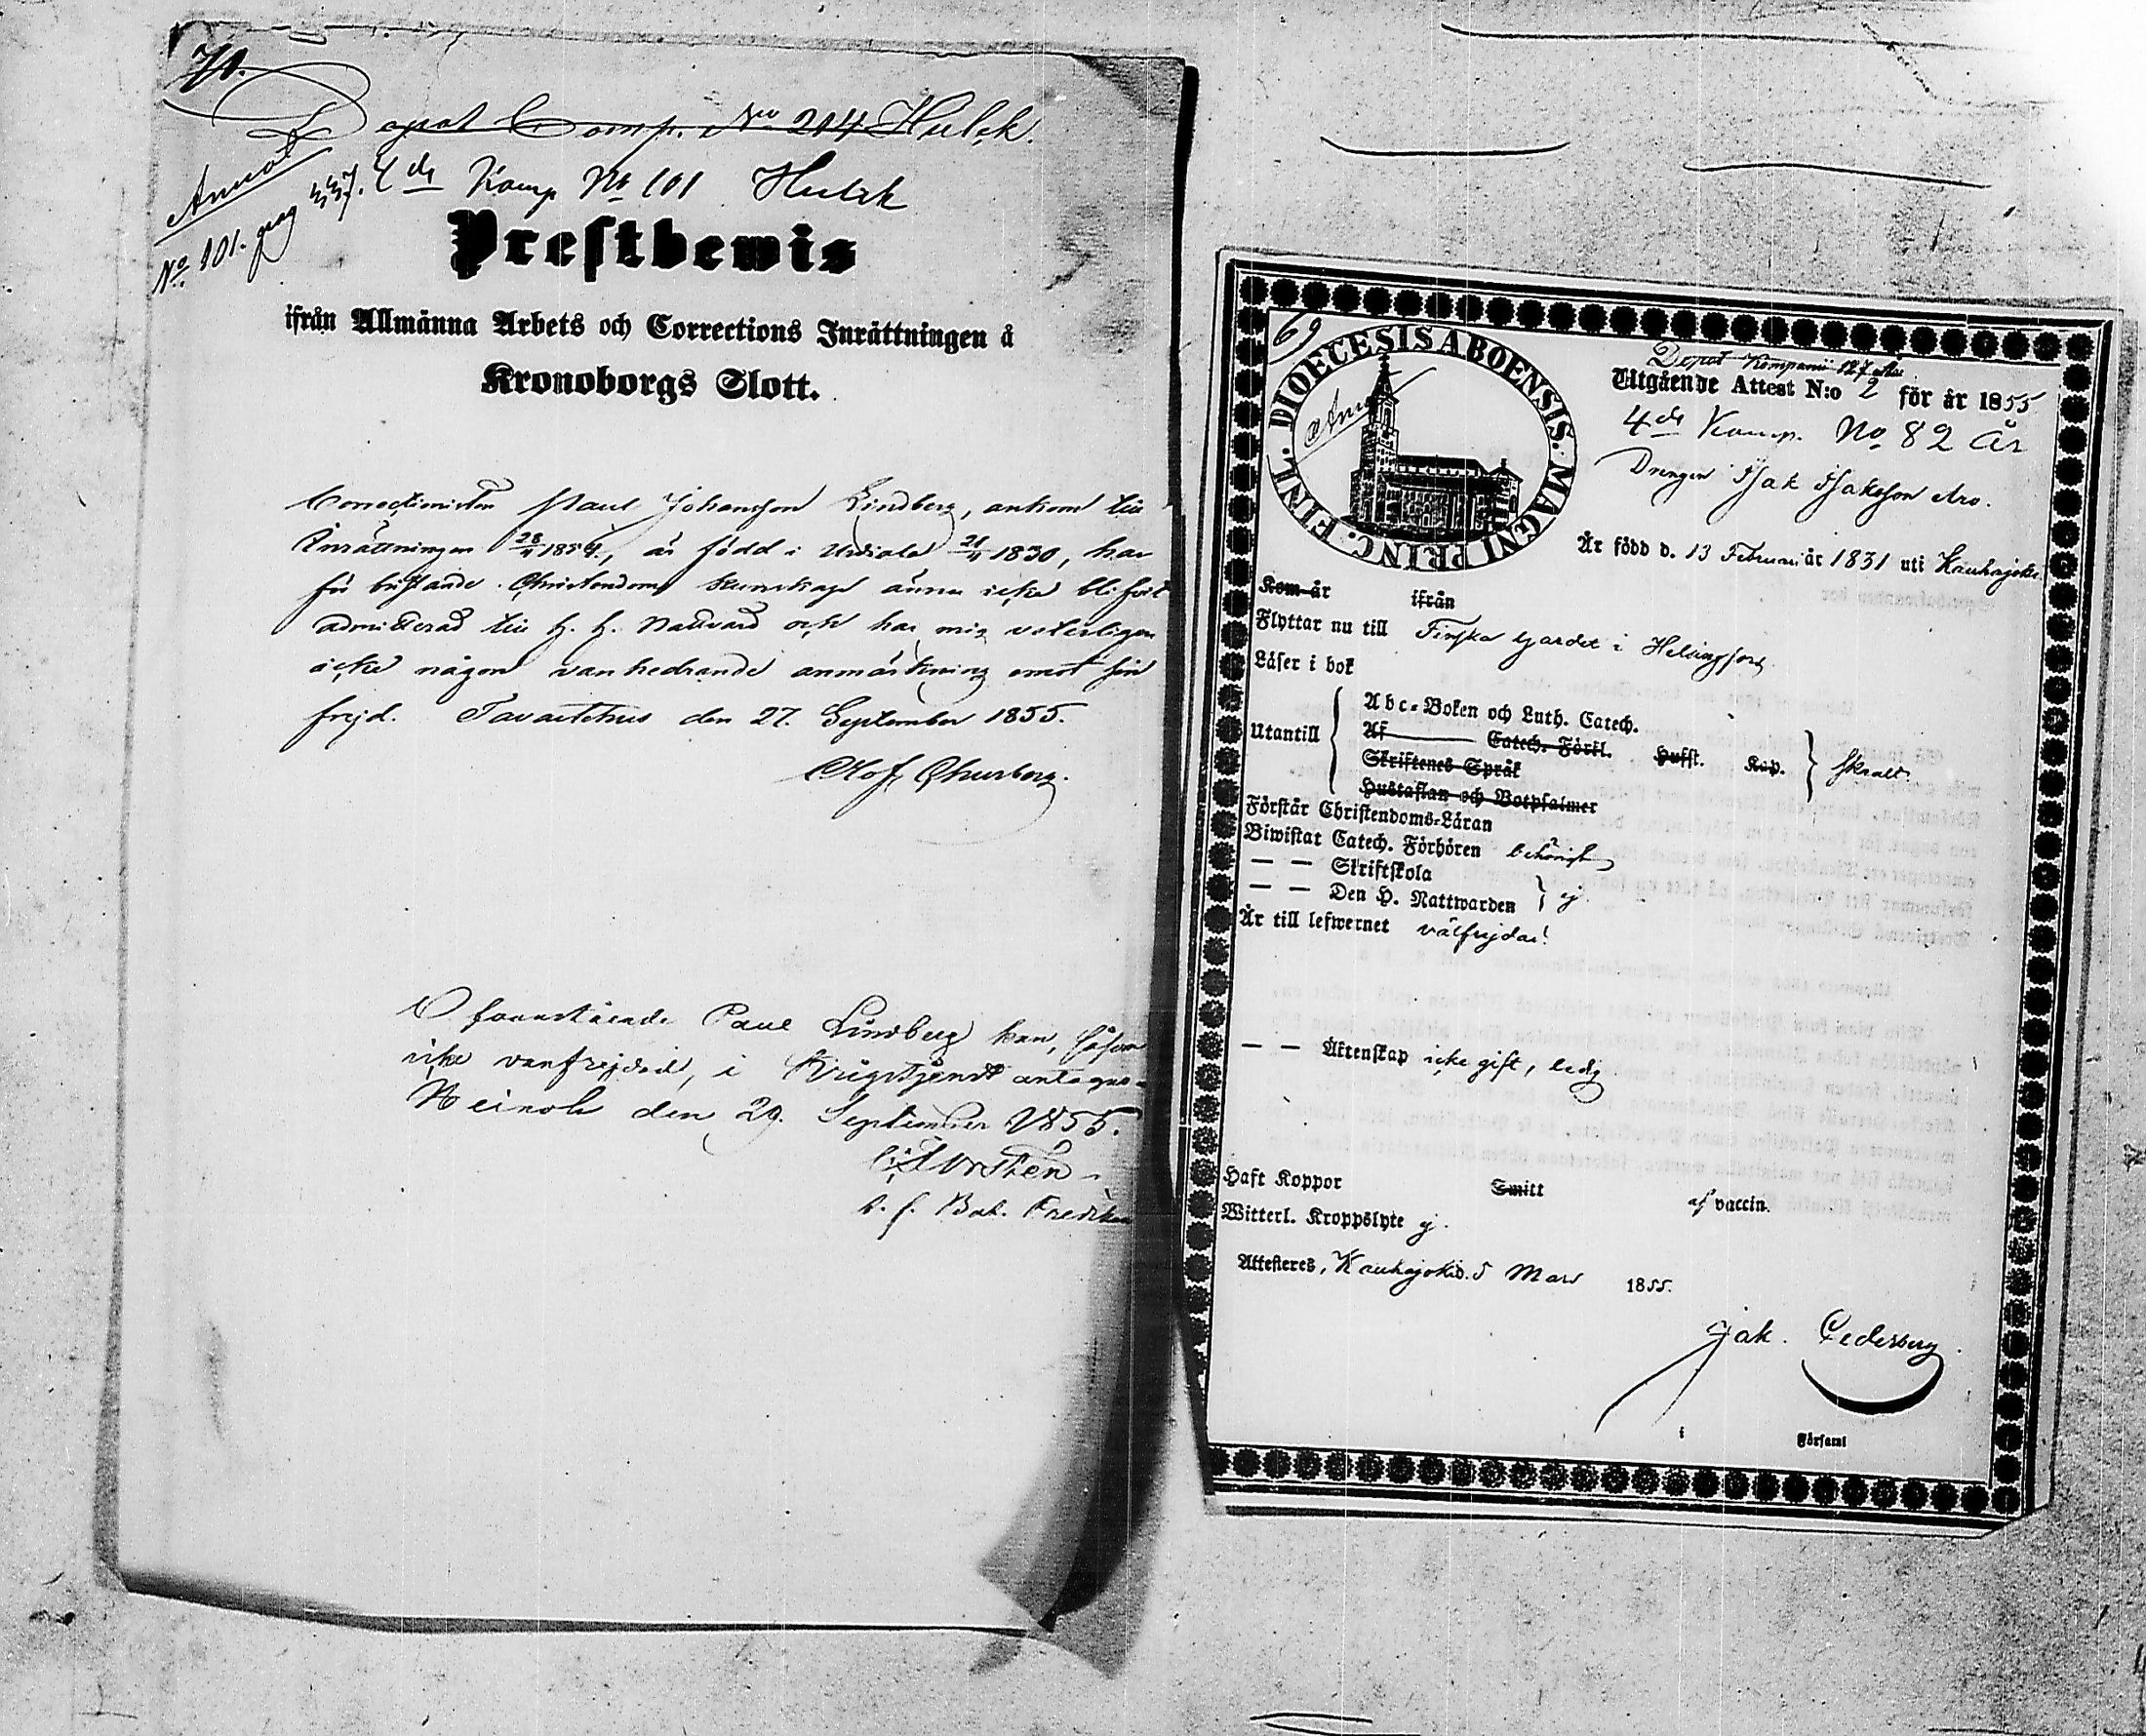 70.
Depot Comp. No 214 Hulck.
4de Komp No 101 Hulck
Annot
No 101. pag 337.
Prestbewis
ifrån Allmänna Arbets och Corrections Inrättningen å
Kronoborgs Slott.
Correctionisten Paul Johansson Lindberg, ankom till
Inrättningen 1854, är född i Urdiala 1830, har
för bristande Christendoms kunskap ännu icke blifvit
admitterad till H. H. Nattvard och har mig veterligen
icke någon vanhedrande anmärkning emot sin
frejd. Tavastehus den 27. September 1855.
Olof Churberg.
Ofvanstående Paul Lindberg kan, såsom
icke vanfrejdad, i Krigstjenst antagas.
Heinola den 29. September 1855.
69
DIOECESIS ABOENSIS. MAGNI PRINC. FINL.
Depot Kompanii 127
Utgående Attest N:o 2 för år 1855
4de Komp. No 82 År
Drengen Isak Isaksson Aro.
Är född d. 13 Februari år 1831 uti Kauhajoki
Kom år ifrån
Flyttar nu till Finska Gardet i Helsingfors
Läser i bok
Utantill
Abc-Boken och Luth. Catech.
Af Catech. Förkl. Hufst. Kap.
Skriftenes Språk
Hustaflan och Botpsalmer
skralt.
Förstår Christendoms-Läran
Biwistat Catech. Förhören behörigt
— — Skriftskola
— — Den H. Nattwarden ej.
Är till lefwernet välfrejdad.
— — Äktenskap icke gift, ledig
Haft Koppor Smitt af vaccin.
Witterl. Kroppslyte ej.
Attesteres, Kauhajoki d. 5 Mars 1855.
Jak. Cederberg.
i Församl